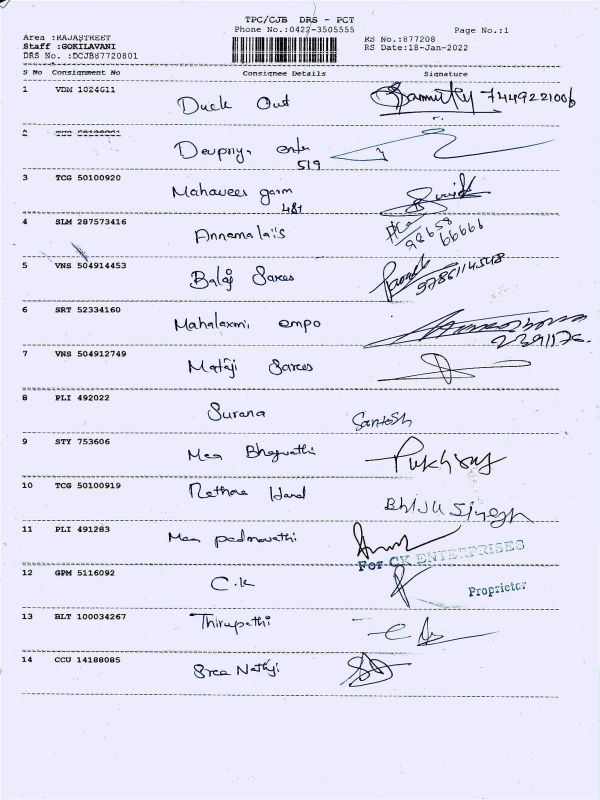 TPC/CJB DRS - PCT
Phone No.:0422-3505555
Page No.:1
Area :RAJASTREET
Staff :GOKILAVANI
DRS No. :DCJB87720801
RS No.:877208
RS Date:18-Jan-2022
S No Consignment No Consignee Details Signature
1 VDM 1024611 Duck Out 7449221006
2 Devpriya ente
519
3 TCG 50100920 Mahaveer garm
481
4 SLM 287573416 Annamalais
92658
66666
5 VNS 504914453 Balaj Sarees 9786114548
6 SRT 52334160 Mahalaxmi empo
7 VNS 504912749 Mataji Sarees
8 PLI 492022 Surana Santosh
9 STY 753606 Maa Bhagvathi Pukhraj
10 TCG 50100919 Rathore Hand Bhiju Singh
11 PLI 491283 Maa padmavathi
For CK ENTERPRISES
12 GPM 5116092 C.K
Proprietor
13 BLT 100034267 Thirupathi
14 CCU 14188085 Sree Nathji